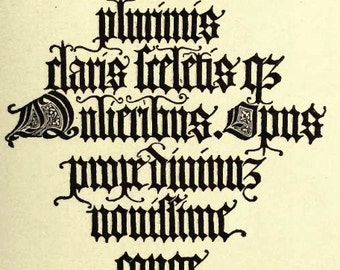 plurimis
claris ſceletis qz
Mulieribus. Opus
prope diuinuz
nouiſſime
conge